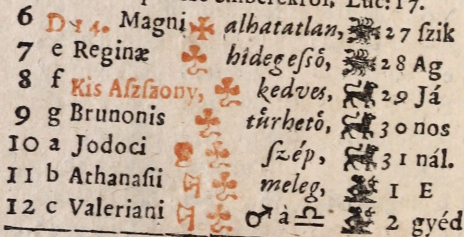 emberekről, Luc: 17.
6 D 14. Magni alhatatlan, 27 ſzik
7 e Reginæ hidegeſső, 28 Ag
8 f Kis Aſzſaony, kedves, 29 Já
9 g Brunonis tűrhető, 30 nos
10 a Jodoci ſzép, 31 nál.
11 b Athanaſii meleg, 1 E
12 c Valeriani ♂ à ♎ 2 gyéd